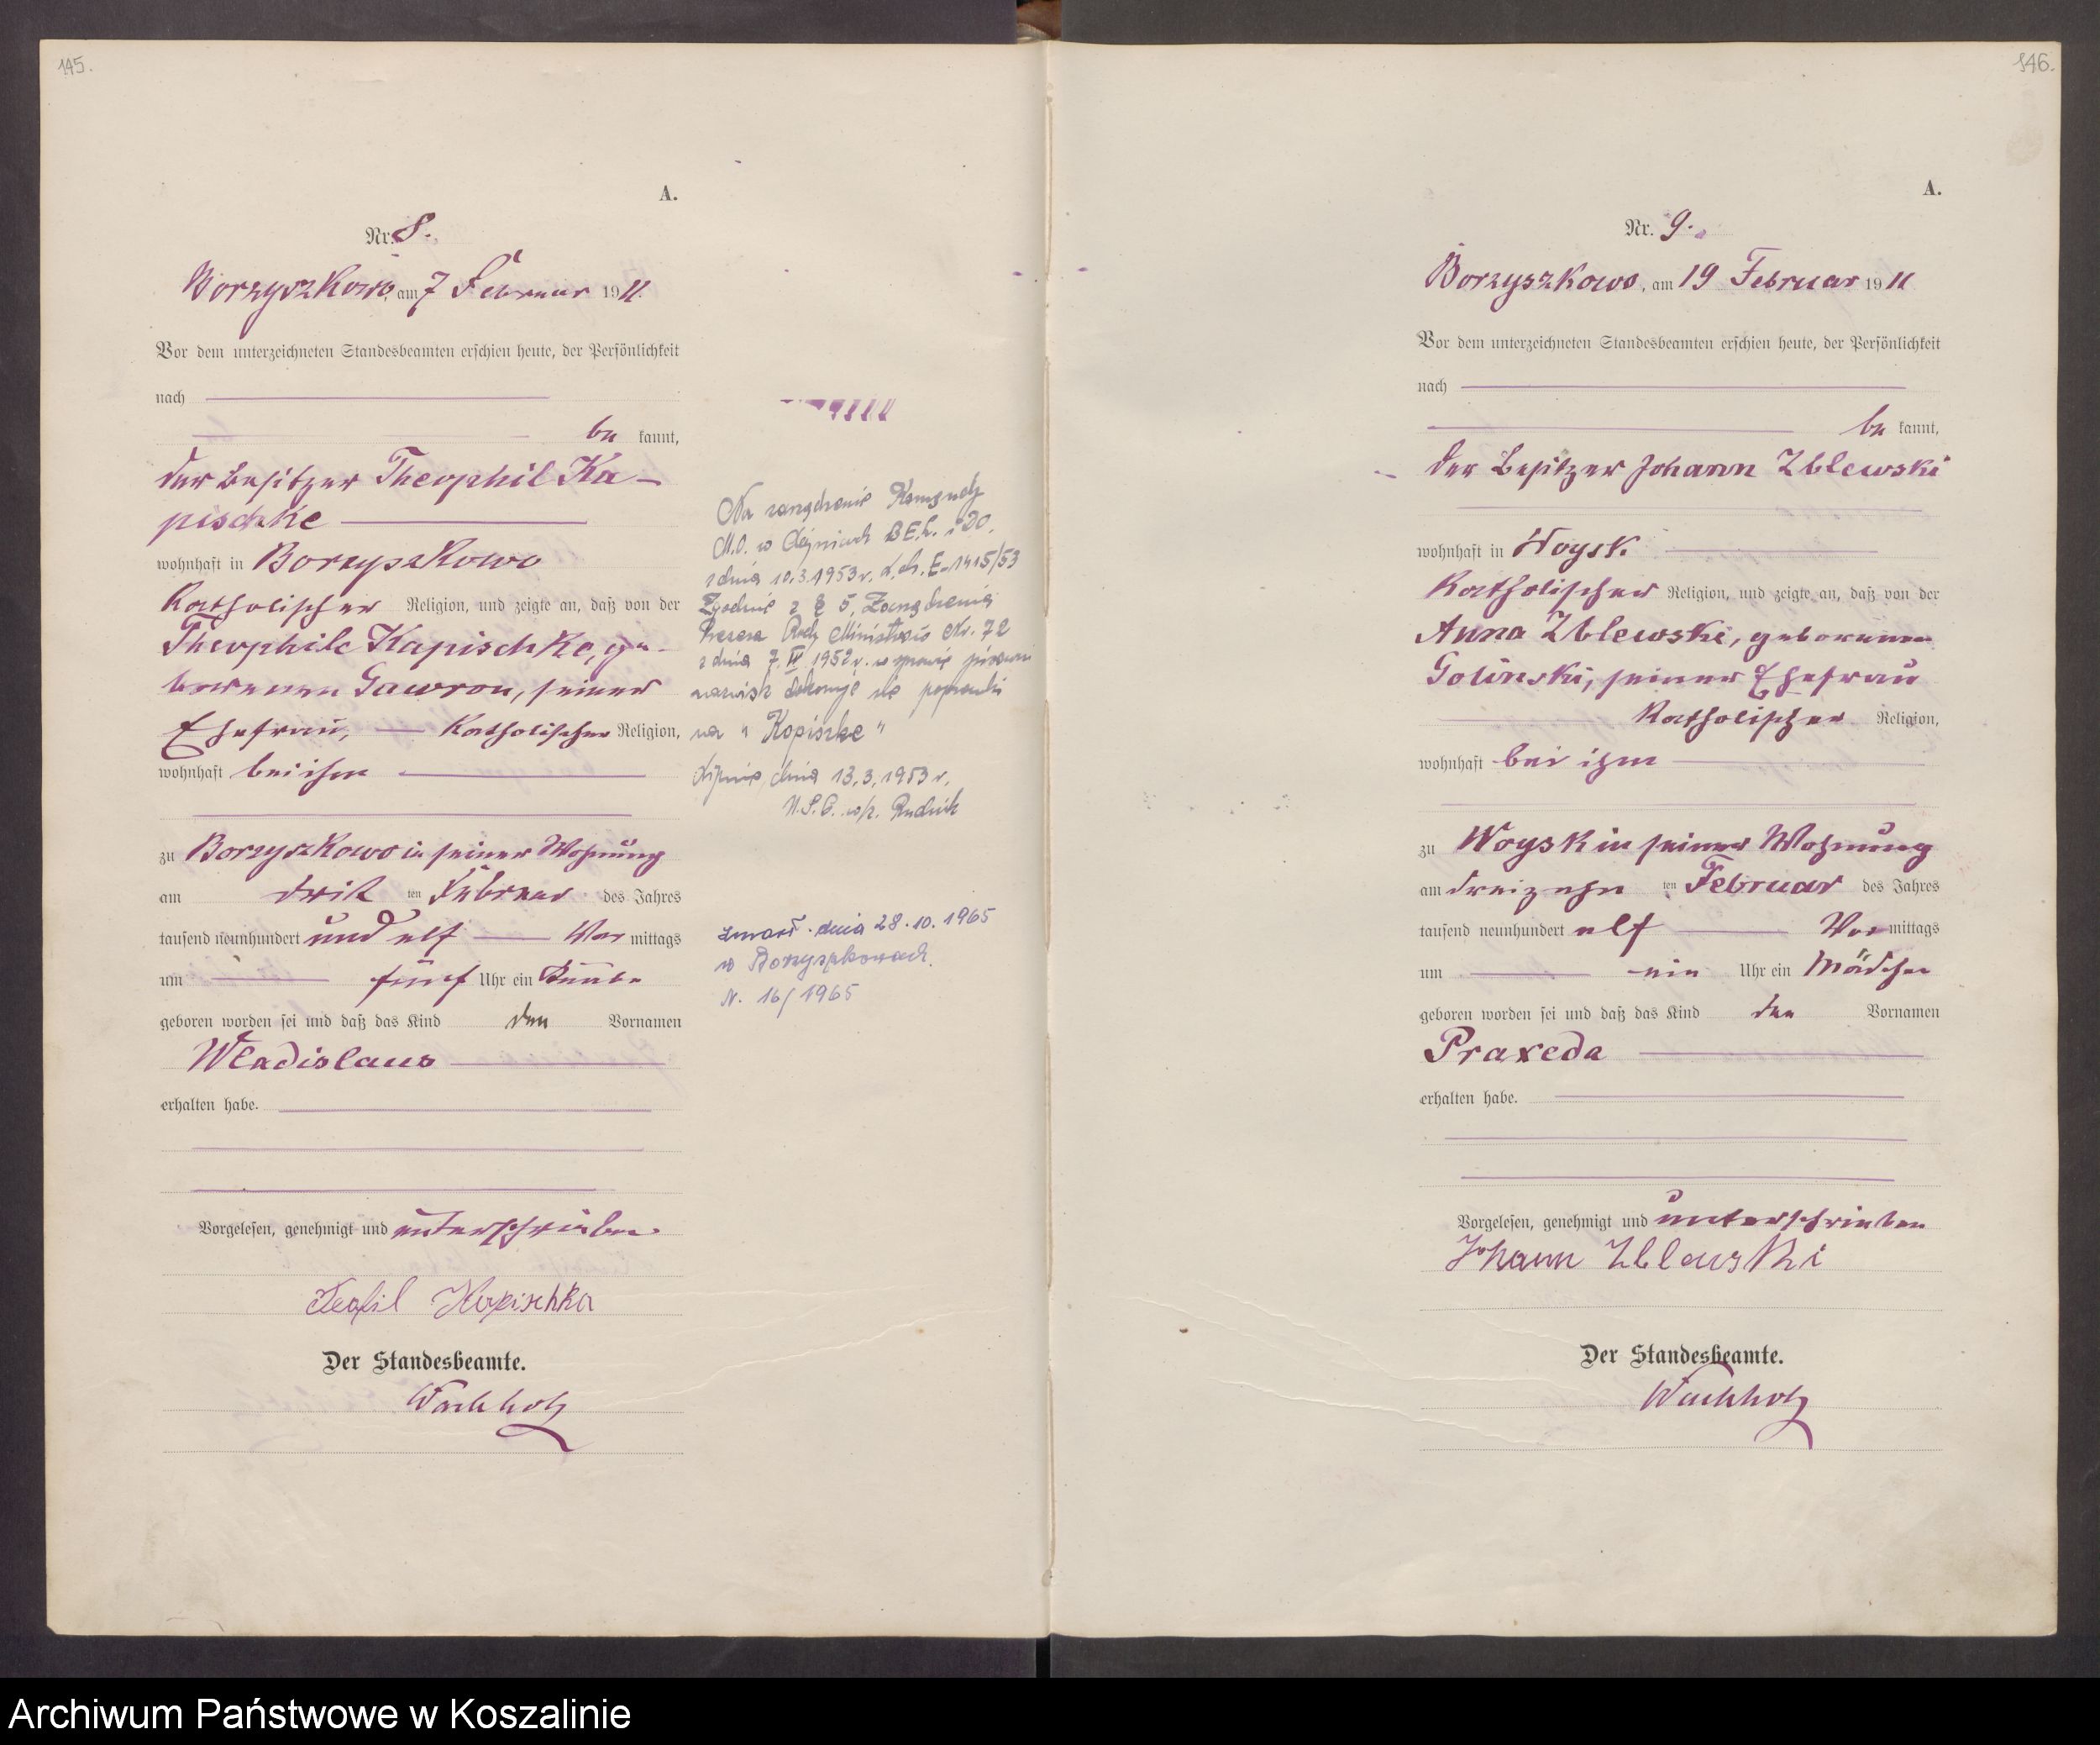 145.
A.
Nr. 8.
Borzyszkowo, am 7 Februar 1911.
Vor dem unterzeichneten Standesbeamten erschien heute, der Persönlichkeit
nach
be kannt,
der Besitzer Theophil Ka-
pischke
wohnhaft in Borzyszkowo
katholischer Religion, und zeigte an, daß von der
Theophile Kapischke, ge-
borenen Gawron, seiner
Ehefrau, katholischer Religion,
wohnhaft bei ihm
zu Borzyszkowo in seiner Wohnung
am drit ten Februar des Jahres
tausend neunhundert und elf Vor mittags
um fünf Uhr ein Knabe
geboren worden sei und daß das Kind den Vornamen
Wladislaus
erhalten habe.
Vorgelesen, genehmigt und unterschrieben.
Teofil Kapischka
Der Standesbeamte.
Wachholz
Na zarządzenie Komendy
M.O. w B.E.L. i D.O.
z dnia 10.3.1953 r. L.dz. E-1415/53
Zgodnie z § 5, Zarządzenia
Prezesa Rady Ministrów Nr. 72
z dnia 7. IV 1952 r. w sprawie pisowni
nazwisk dokonuje się poprawki
na "Kopiszke"
dnia 13.3.1953 r.
U.S.C. w/z. Rudnik
zmarł dnia 28.10.1965
w Borzyszkowach.
N. 16/1965
146.
A.
Nr. 9.
Borzyszkowo, am 19 Februar 1911
Vor dem unterzeichneten Standesbeamten erschien heute, der Persönlichkeit
nach
be kannt,
der Besitzer Johann Zblewski
wohnhaft in Woysk
katholischer Religion, und zeigte an, daß von der
Anna Zblewski, geborenen
Golinski, seiner Ehefrau
katholischer Religion,
wohnhaft bei ihm
zu Woysk in seiner Wohnung
am dreizehn ten Februar des Jahres
tausend neunhundert elf Vor mittags
um ein Uhr ein Mädchen
geboren worden sei und daß das Kind den Vornamen
Praxeda
erhalten habe.
Vorgelesen, genehmigt und unterschrieben
Johann Zblewski
Der Standesbeamte.
Wachholz
Archiwum Państwowe w Koszalinie